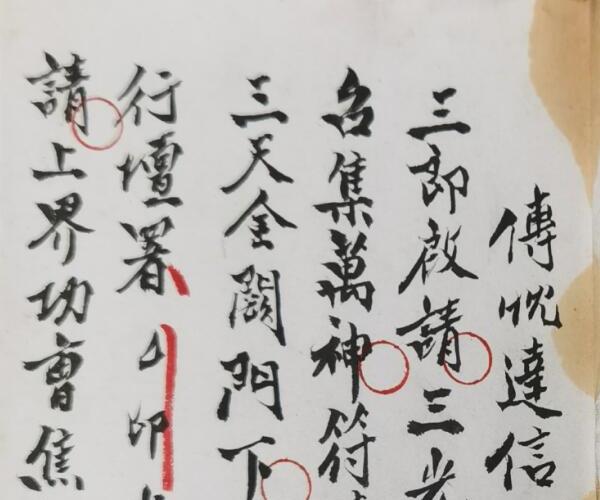 傳呪達信
三郎啟請三光
召集萬神符
三天金闕門下
行壇署厶印
請上界功曹焦